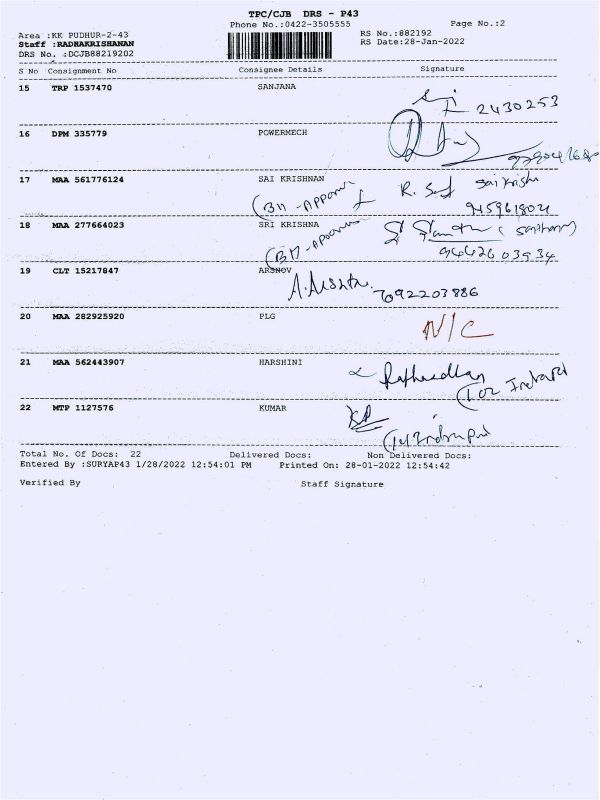 TPC/CJB DRS - P43
Phone No.:0422-3505555
Page No.:2
Area :KK PUDHUR-2-43
RS No.:882192
Staff :RADHAKRISHANAN
RS Date:28-Jan-2022
DRS No. :DCJB88219202
S No Consignment No Consignee Details Signature
15 TRP 1537470 SANJANA
2430253
16 DPM 335779 POWERMECH
17 MAA 561776124 SAI KRISHNAN
R. Sai
18 MAA 277664023 SRI KRISHNA
9442603934
19 CLT 15217847 ARSNOV
7092203886
20 MAA 282925920 PLG
N/C
21 MAA 562443907 HARSHINI
22 MTP 1127576 KUMAR
Total No. Of Docs: 22 Delivered Docs: Non Delivered Docs:
Entered By :SURYAP43 1/28/2022 12:54:01 PM Printed On: 28-01-2022 12:54:42
Verified By Staff Signature